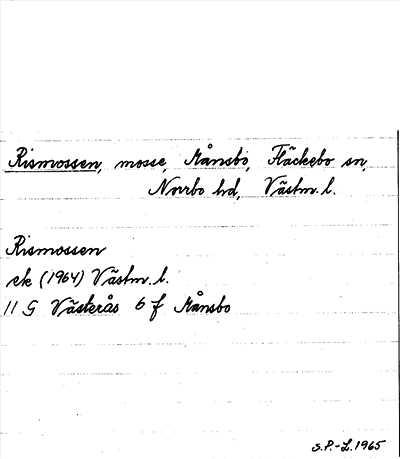 Rismossen, mosse, Månsbo, Fläckebo sn,
Norrbo hd, Västm. l.
Rismossen
ek (1964) Västm. l.
11 G Västerås 6 f Månsbo
S.P.-L. 1965